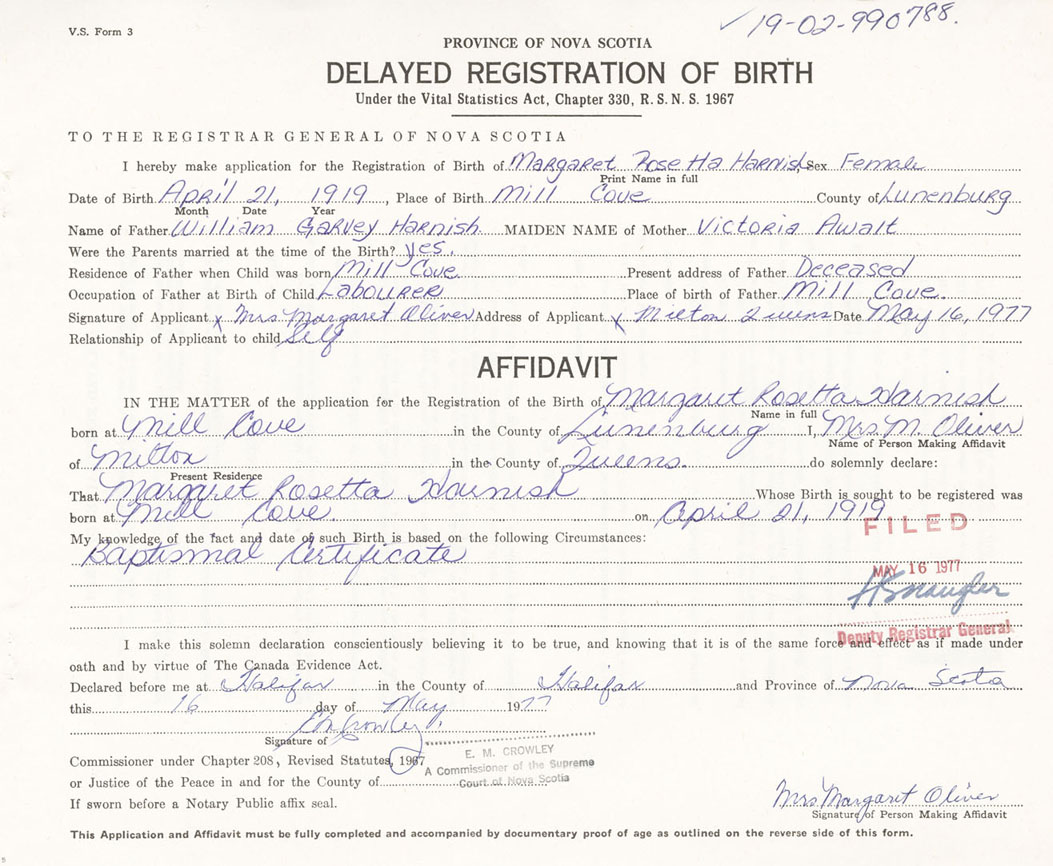 ✓19-02-990788.
V.S. Form 3
PROVINCE OF NOVA SCOTIA
DELAYED REGISTRATION OF BIRTH
Under the Vital Statistics Act, Chapter 330, R.S.N.S. 1967
TO THE REGISTRAR GENERAL OF NOVA SCOTIA
I hereby make application for the Registration of Birth of Margaret Rosetta Harnish, Sex Female
Print Name in full
Date of Birth April 21, 1919, Place of Birth Mill Cove County of Lunenburg
Month Date Year
Name of Father William Garvey Harnish. MAIDEN NAME of Mother Victoria Awalt
Were the Parents married at the time of the Birth? Yes.
Residence of Father when Child was born Mill Cove Present address of Father Deceased
Occupation of Father at Birth of Child Labourer Place of birth of Father Mill Cove.
Signature of Applicant x Mrs Margaret Oliver Address of Applicant x Milton Queens Date May 16, 1977
Relationship of Applicant to child Self
AFFIDAVIT
IN THE MATTER of the application for the Registration of the Birth of Margaret Rosetta Harnish
Name in full
born at Mill Cove in the County of Lunenburg I, Mrs M. Oliver
Name of Person Making Affidavit
of Milton in the County of Queens. do solemnly declare:
Present Residence
That Margaret Rosetta Harnish Whose Birth is sought to be registered was
born at Mill Cove. on April 21, 1919
FILED
My knowledge of the fact and date of such Birth is based on the following Circumstances:
Baptismal Certificate
MAY 16 1977
Deputy Registrar General
I make this solemn declaration conscientiously believing it to be true, and knowing that it is of the same force and effect as if made under
oath and by virtue of The Canada Evidence Act.
Declared before me at Halifax in the County of Halifax and Province of Nova Scotia
this 16 day of May 1977
EM Crowley
Signature of
Commissioner under Chapter 208, Revised Statutes, 1967
E. M. CROWLEY
A Commissioner of the Supreme
Court of Nova Scotia
or Justice of the Peace in and for the County of
If sworn before a Notary Public affix seal.
Mrs Margaret Oliver
Signature of Person Making Affidavit
This Application and Affidavit must be fully completed and accompanied by documentary proof of age as outlined on the reverse side of this form.